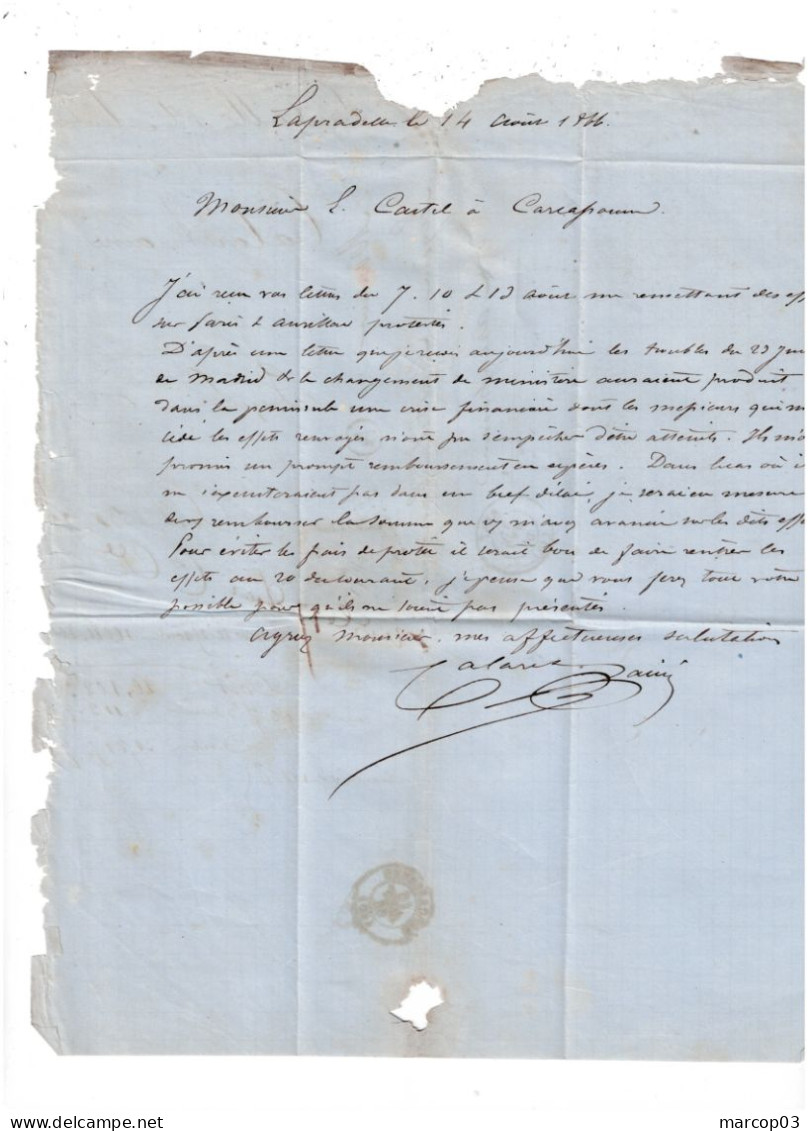 Lapradelle le 14 Août 1866.
Monsieur L. Castel à Carcassonne
J'ai reçu vos lettres du 7. 10 & 13 août me remettant des eff
sur Paris & Aurillac protestés.
D'après une lettre que je reçois aujourd'hui les troubles du 23 Jui
de Madrid & le changement de ministère auraient produit
dans la peninsule une crise financière dont les messieurs qui m
cédé les effets renvoyés n'ont pu s'empêcher d'être atteints. Ils m'o
promis un prompt remboursement en espèces. Dans le cas où i
ne s'exécuteraient pas dans un bref délai, je serai en mesure
de vs rembourser la somme que vs m'avez avancée sur les dits effe
Pour éviter les frais de protêt il serait bon de faire rentrer les
effets au 20 du courant, je pense que vous ferez tout votre
possible pour qu'ils ne soient pas présentés.
Agréez Monsieur, mes affectueuses salutations
marcop03